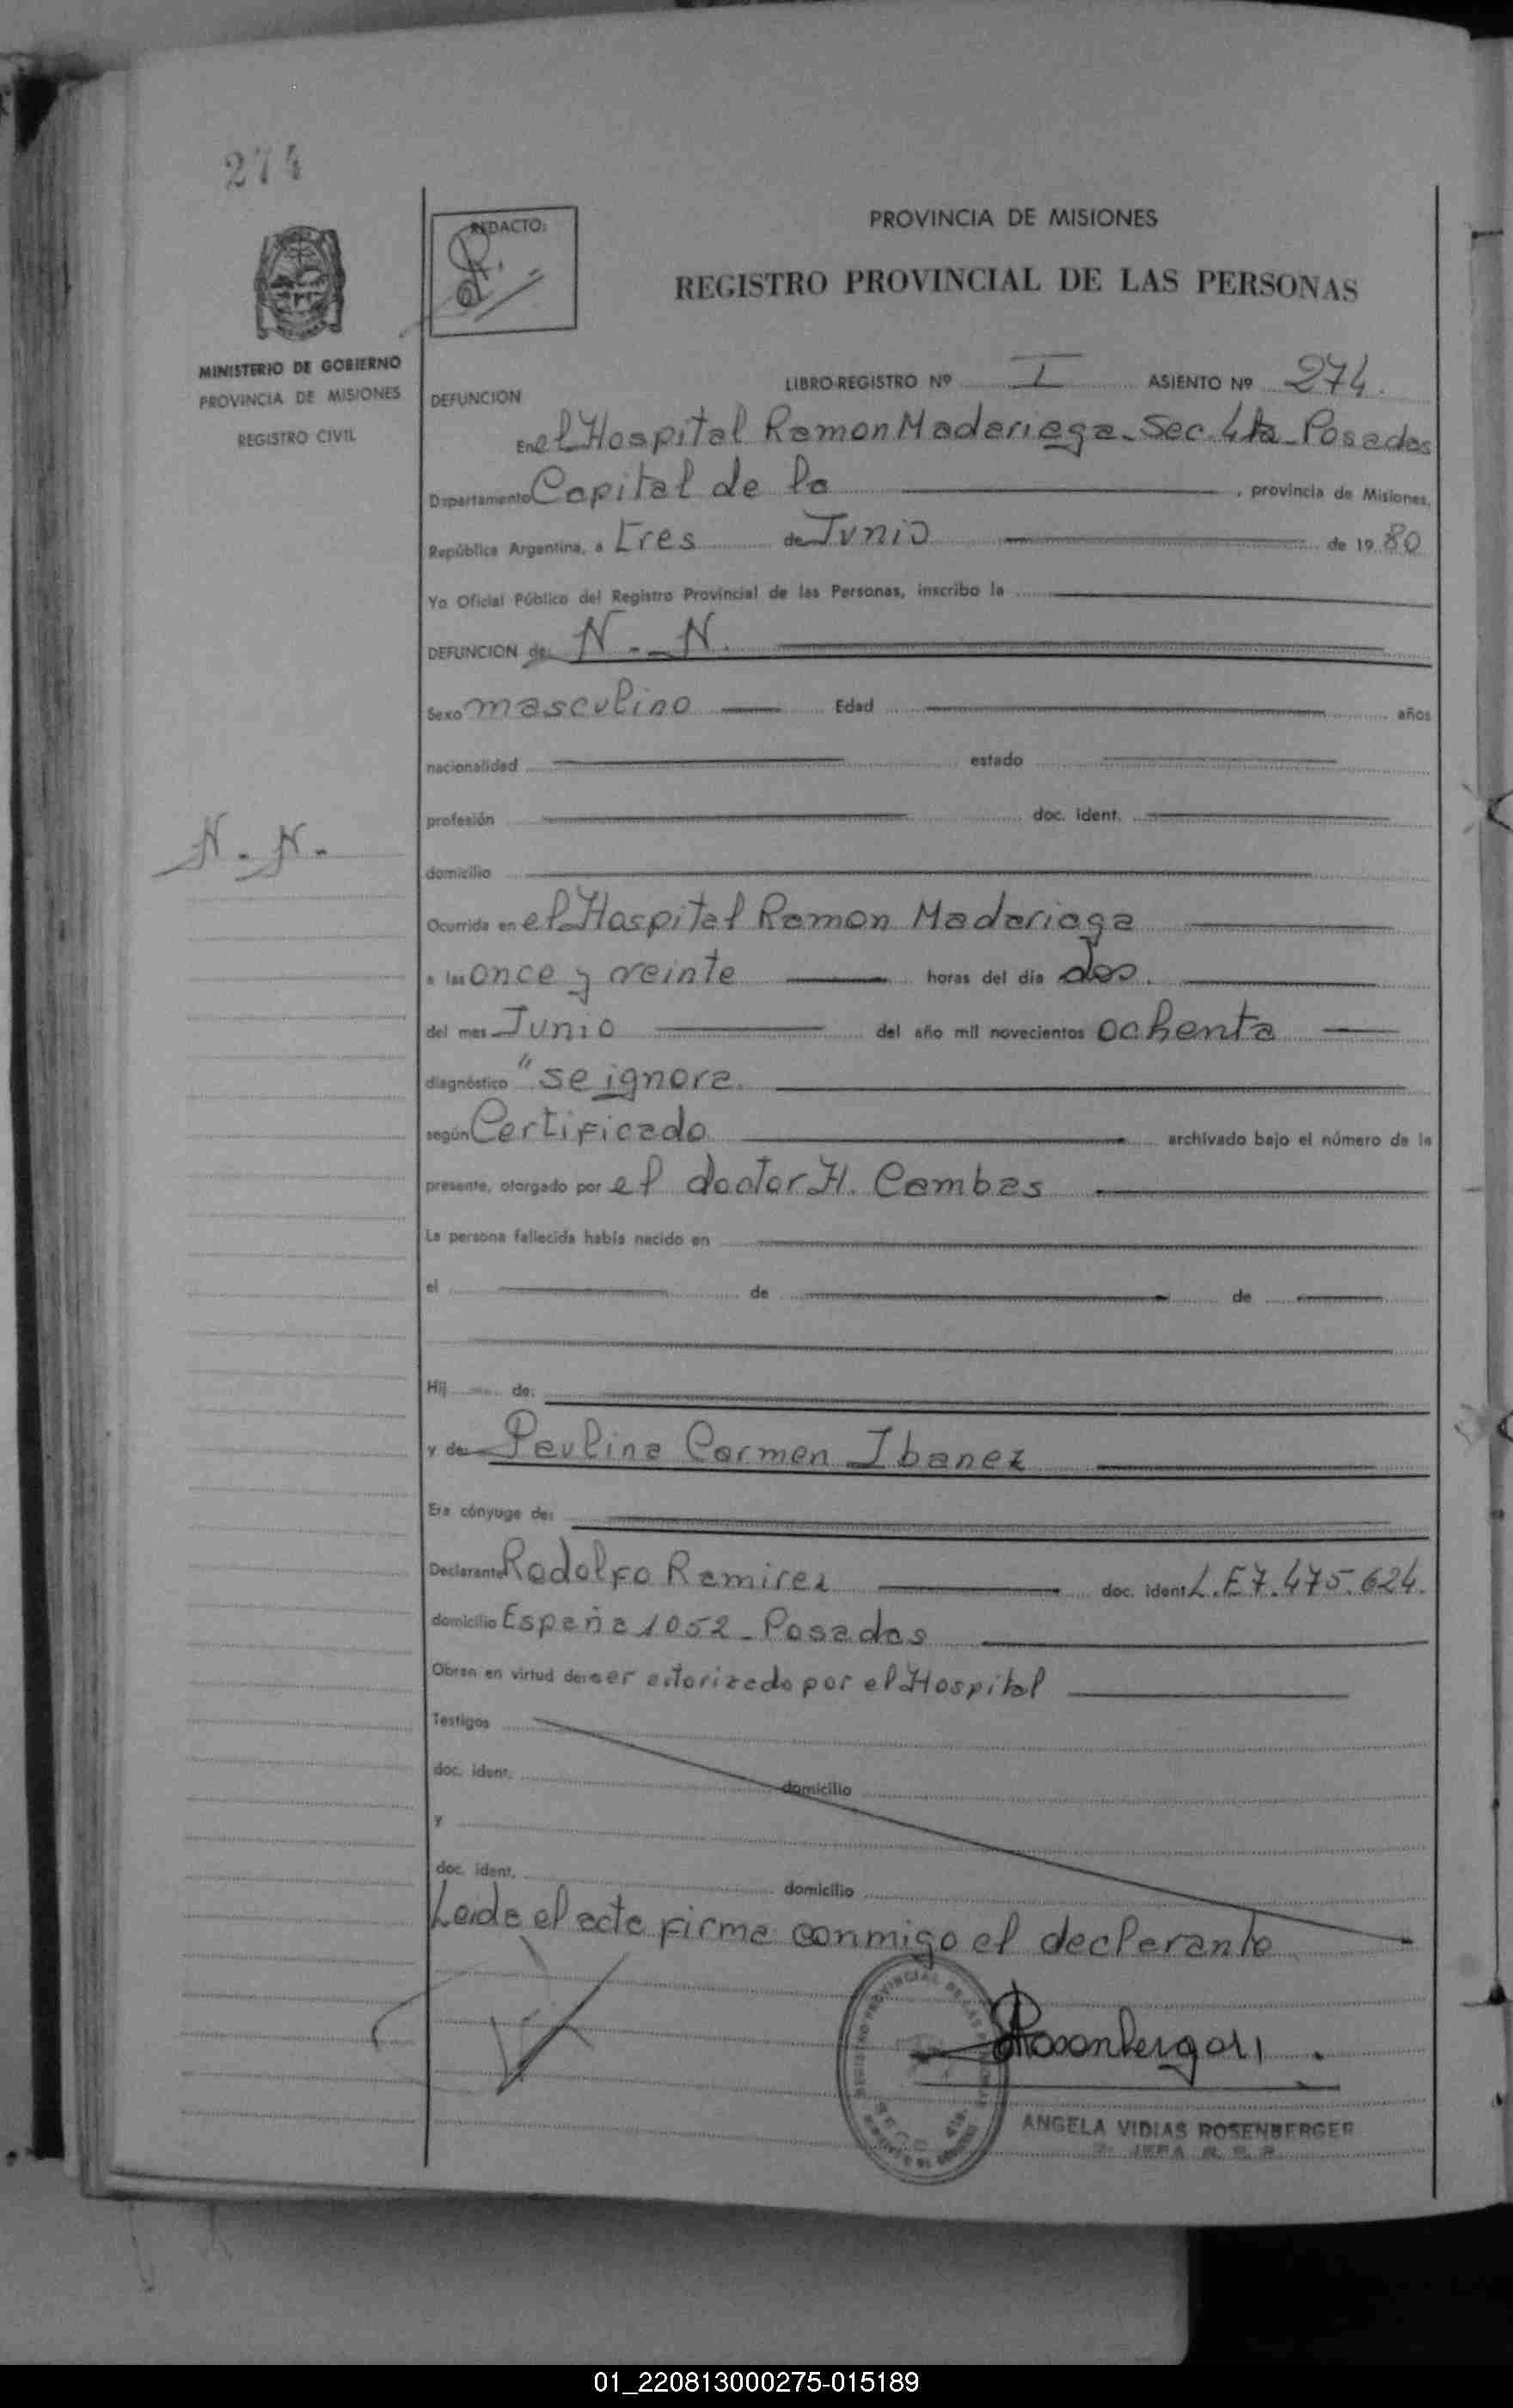 274
REDACTO:
PROVINCIA DE MISIONES
REGISTRO PROVINCIAL DE LAS PERSONAS
MINISTERIO DE GOBIERNO
PROVINCIA DE MISIONES
REGISTRO CIVIL
LIBRO-REGISTRO Nº I ASIENTO Nº 274.
DEFUNCION
En el Hospital Ramon Madariaga - Sec. 4ta - Posadas
Departamento Capital de la , provincia de Misiones,
República Argentina, a tres de Junio de 1980
Yo Oficial Público del Registro Provincial de las Personas, inscribo la
DEFUNCION de: N. - N.
Sexo masculino Edad años
nacionalidad estado
profesión doc. ident.
N. N.
domicilio
Ocurrida en el Hospital Ramon Madariaga
a las once y veinte horas del día dos.
del mes Junio del año mil novecientos ochenta
diagnóstico "se ignora.
según Certificado archivado bajo el número de la
presente, otorgado por el doctor H. Cambas
La persona fallecida había nacido en
el de de
Hij de:
y de: Paulina Carmen Ibanez
Era cónyuge de:
Declarante Rodolfo Ramirez doc. ident. L.E 7.475.624.
domicilio España 1052 - Posadas
Obran en virtud de: ser autorizado por el Hospital
Testigos
doc. ident. domicilio
y
doc. ident. domicilio
Leida el acta firma conmigo el declarante
ANGELA VIDIAS ROSENBERGER
01_220813000275-015189